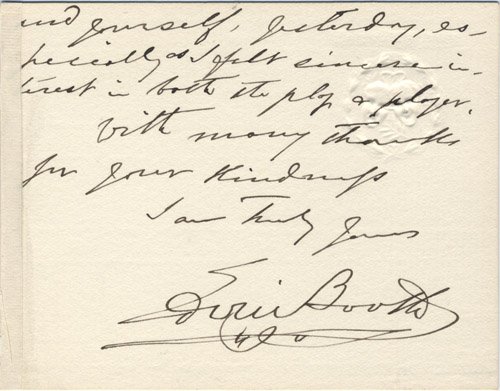 and yourself, yesterday, es-
pecially as I felt sincere in-
terest in both the play & player.
With many thanks
for your kindness
I am Truly Yours
Edwin Booth